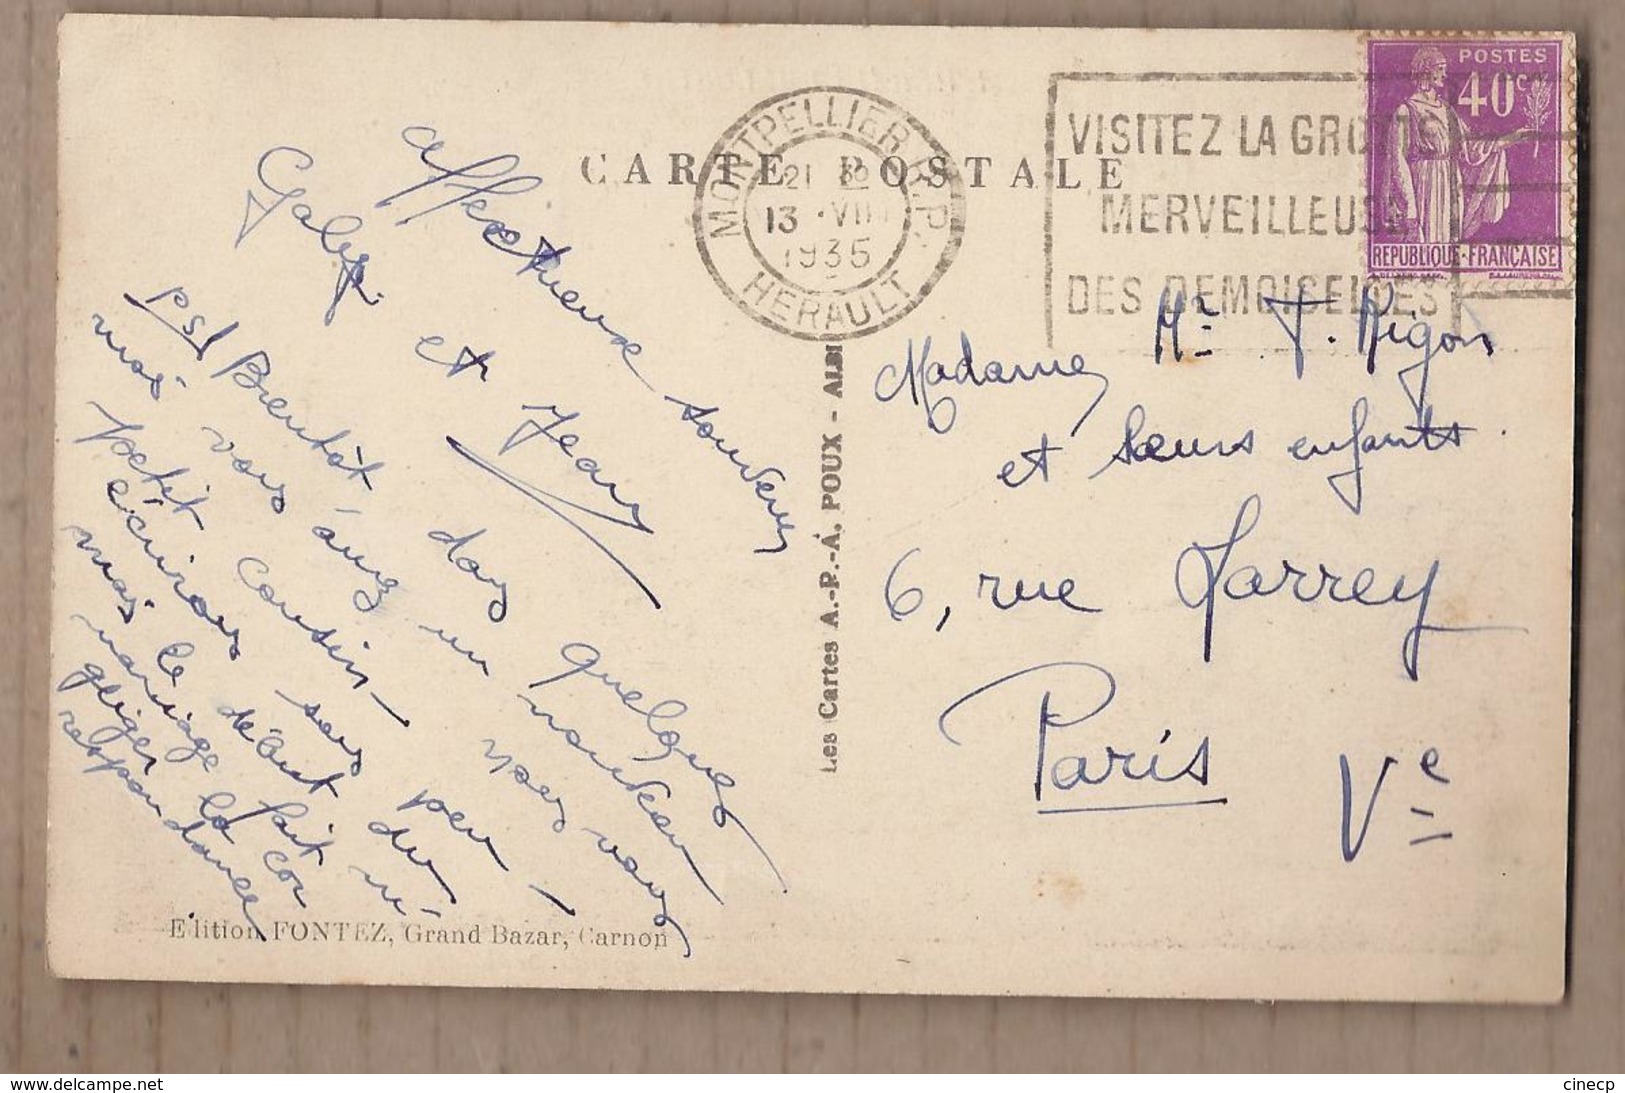 CARTE POSTALE
MONTPELLIER R.P.
21 30
13 VIII
1935
HERAULT
VISITEZ LA GROTTE
MERVEILLEUSE
DES DEMOISELLES
POSTES
40c
REPUBLIQUE FRANÇAISE
affectueux souvenirs
Gaby et Jean
ps/ Bientôt dans quelques
mois vous aurez un nouveau
petit cousin - nous vous
écrirons sous peu -
mais le début du
mariage fait né
gliger la cor
respondance
Mr T. Migon
Madame
et leurs enfants.
6, rue Larrey
Paris Ve
Les Cartes A.-P.-A. POUX - ALBI
Edition FONTEZ, Grand Bazar, Carnon
cinecp
www.delcampe.net